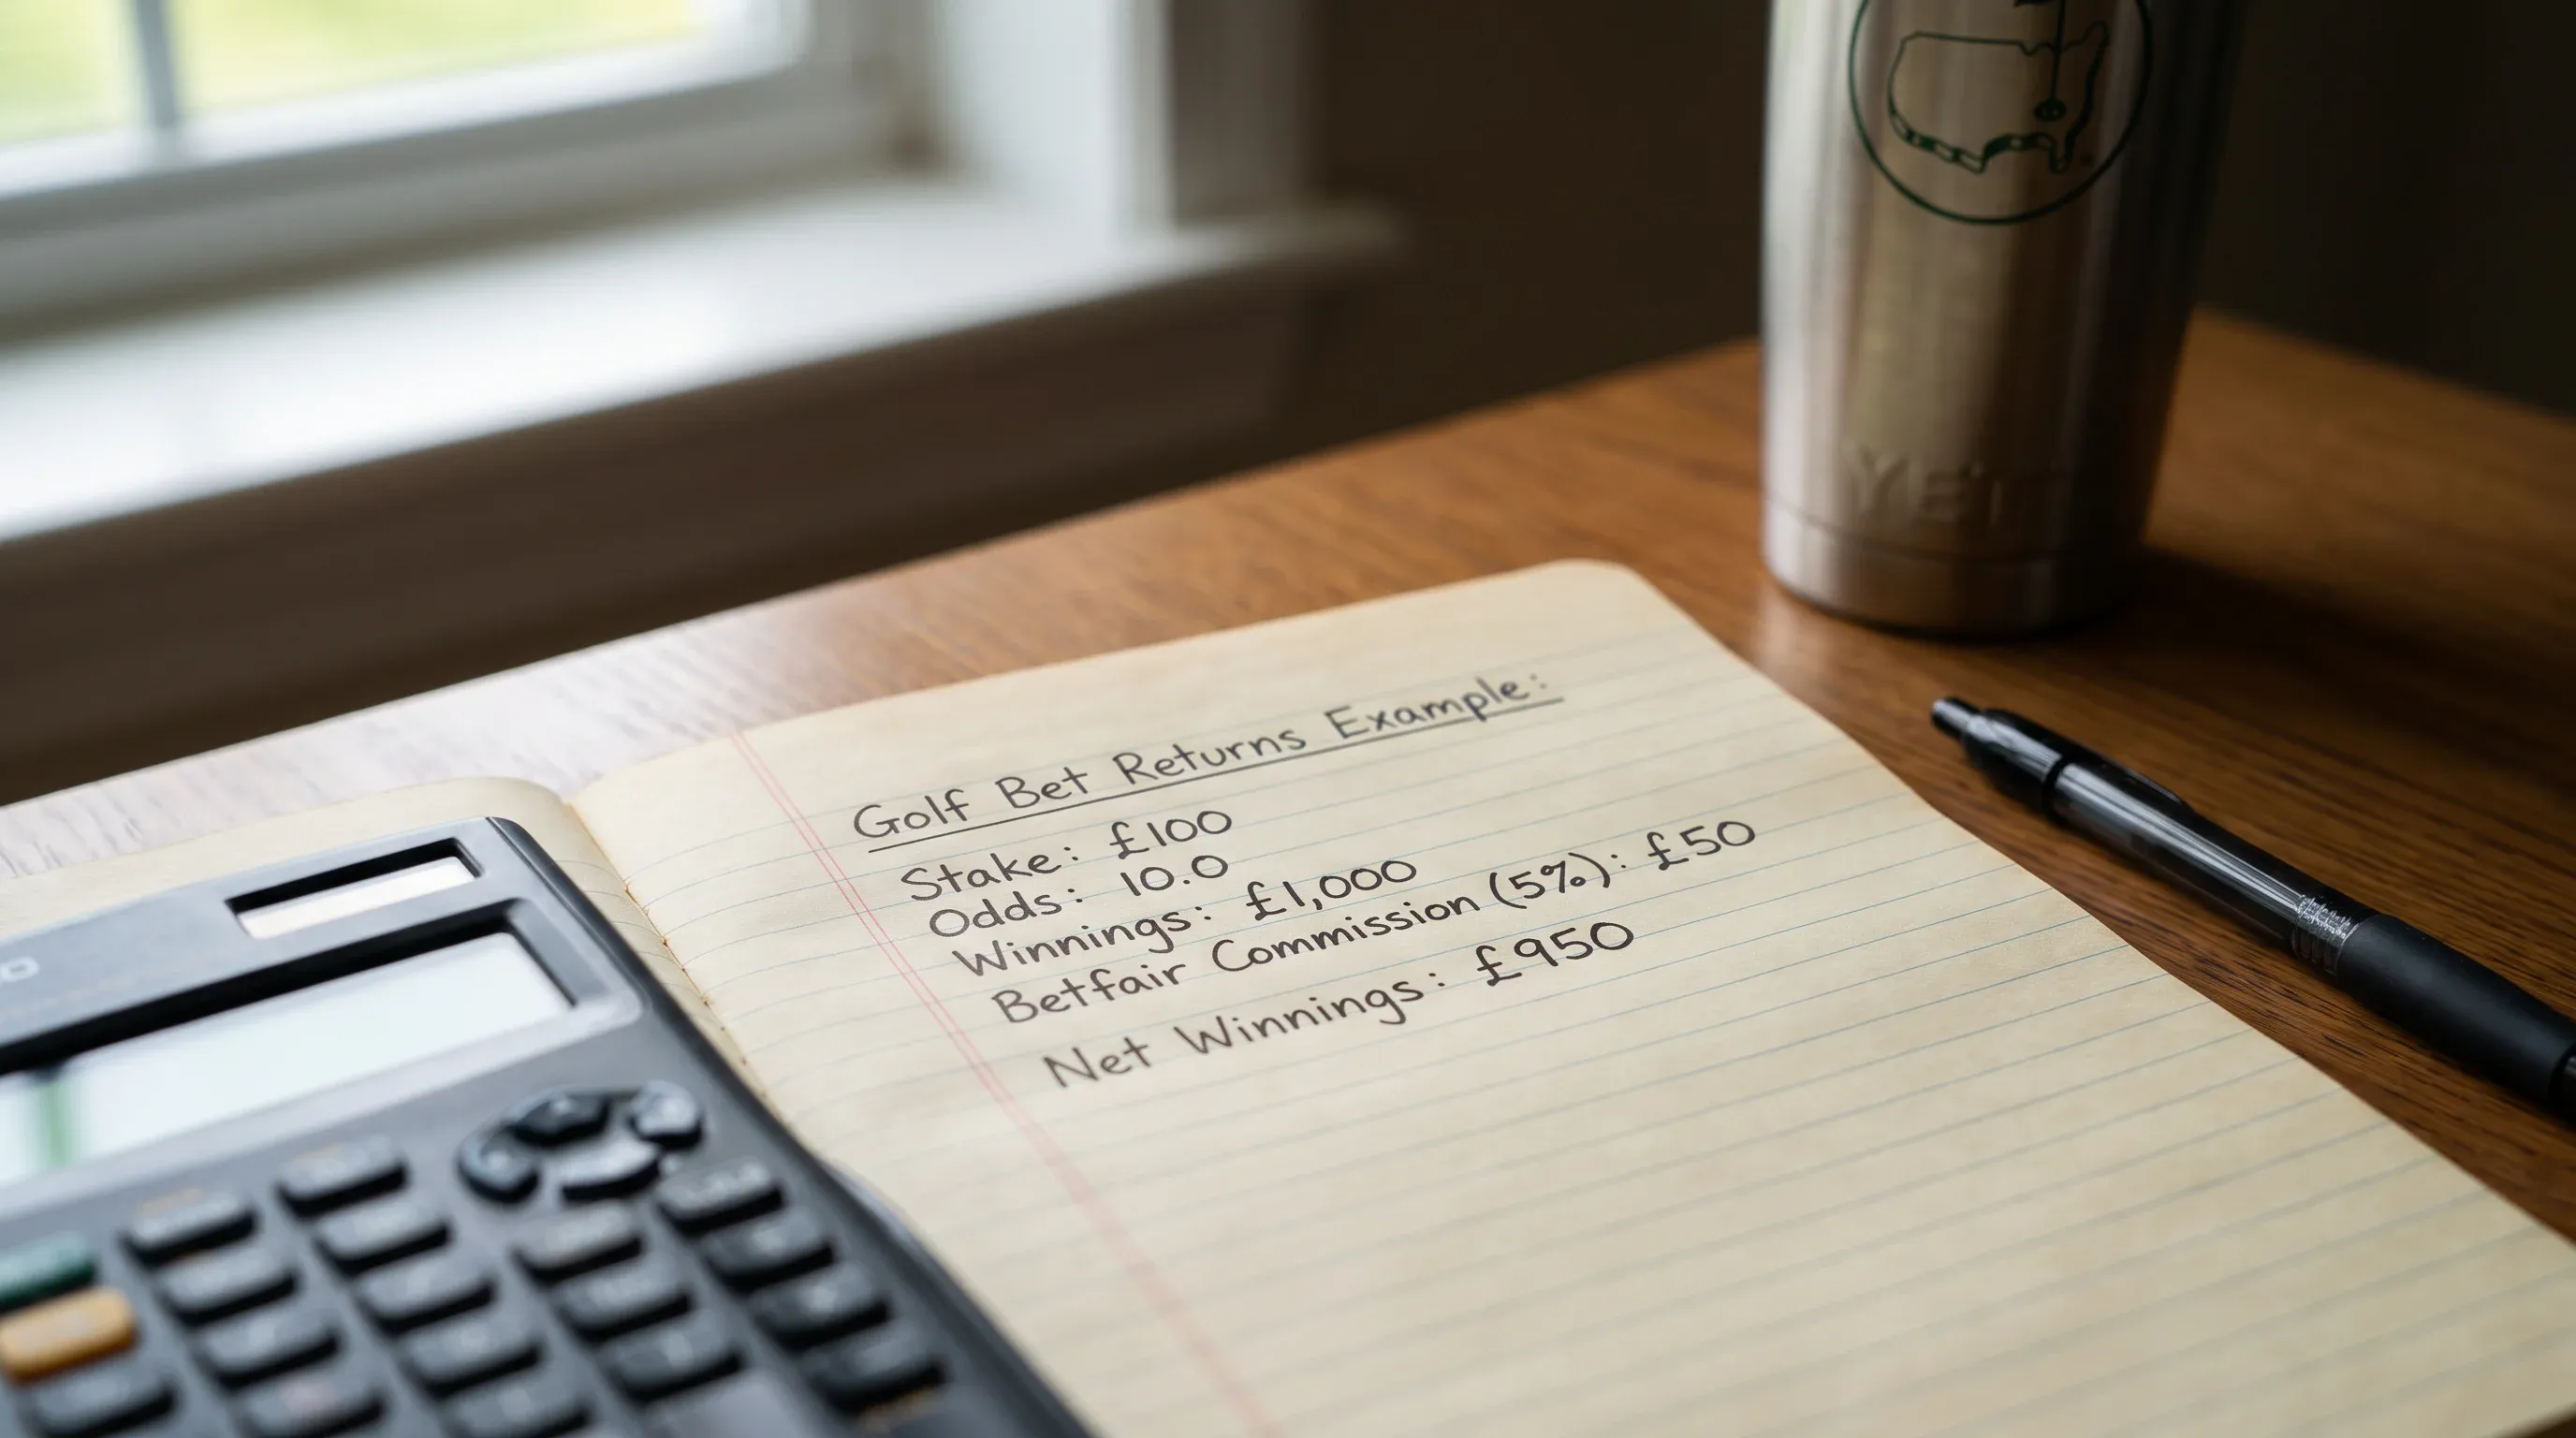 YETI
Golf Bet Returns Example:
Stake: £100
Odds: 10.0
Winnings: £1,000
Betfair Commission (5%): £50
Net Winnings: £950